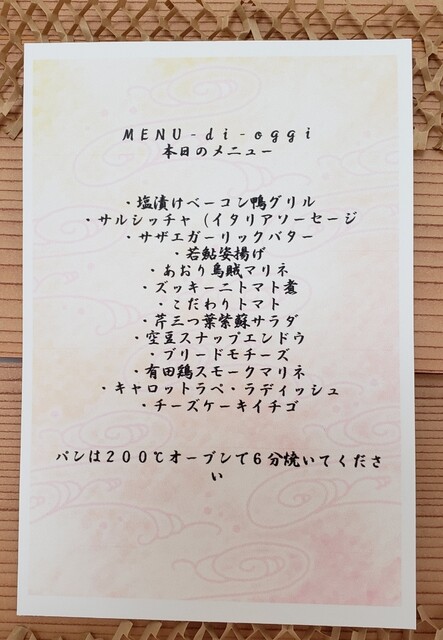 MENU-di-oggi
本日のメニュー
・塩漬けベーコン鴨グリル
・サルシッチャ (イタリアソーセージ
・サザエガーリックバター
・若鮎姿揚げ
・あおり烏賊マリネ
・ズッキーニトマト煮
・こだわりトマト
・芹三つ葉紫蘇サラダ
・空豆スナップエンドウ
・ブリードモチーズ
・有田鶏スモークマリネ
・キャロットラペ・ラディッシュ
・チーズケーキイチゴ
パンは200℃オーブンで6分焼いてくださ
い